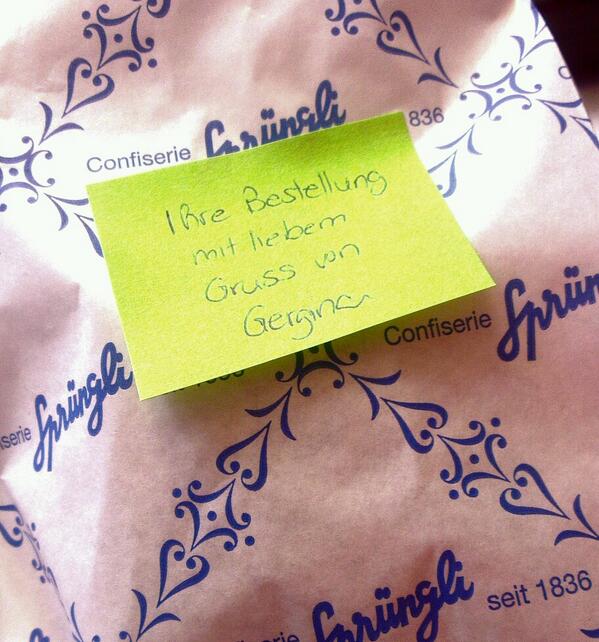 Confiserie Sprüngli 836
Ihre Bestellung
mit liebem
Gruss von
Gergina
Confiserie Sprün
serie Sprüngli
Sprüngli seit 1836